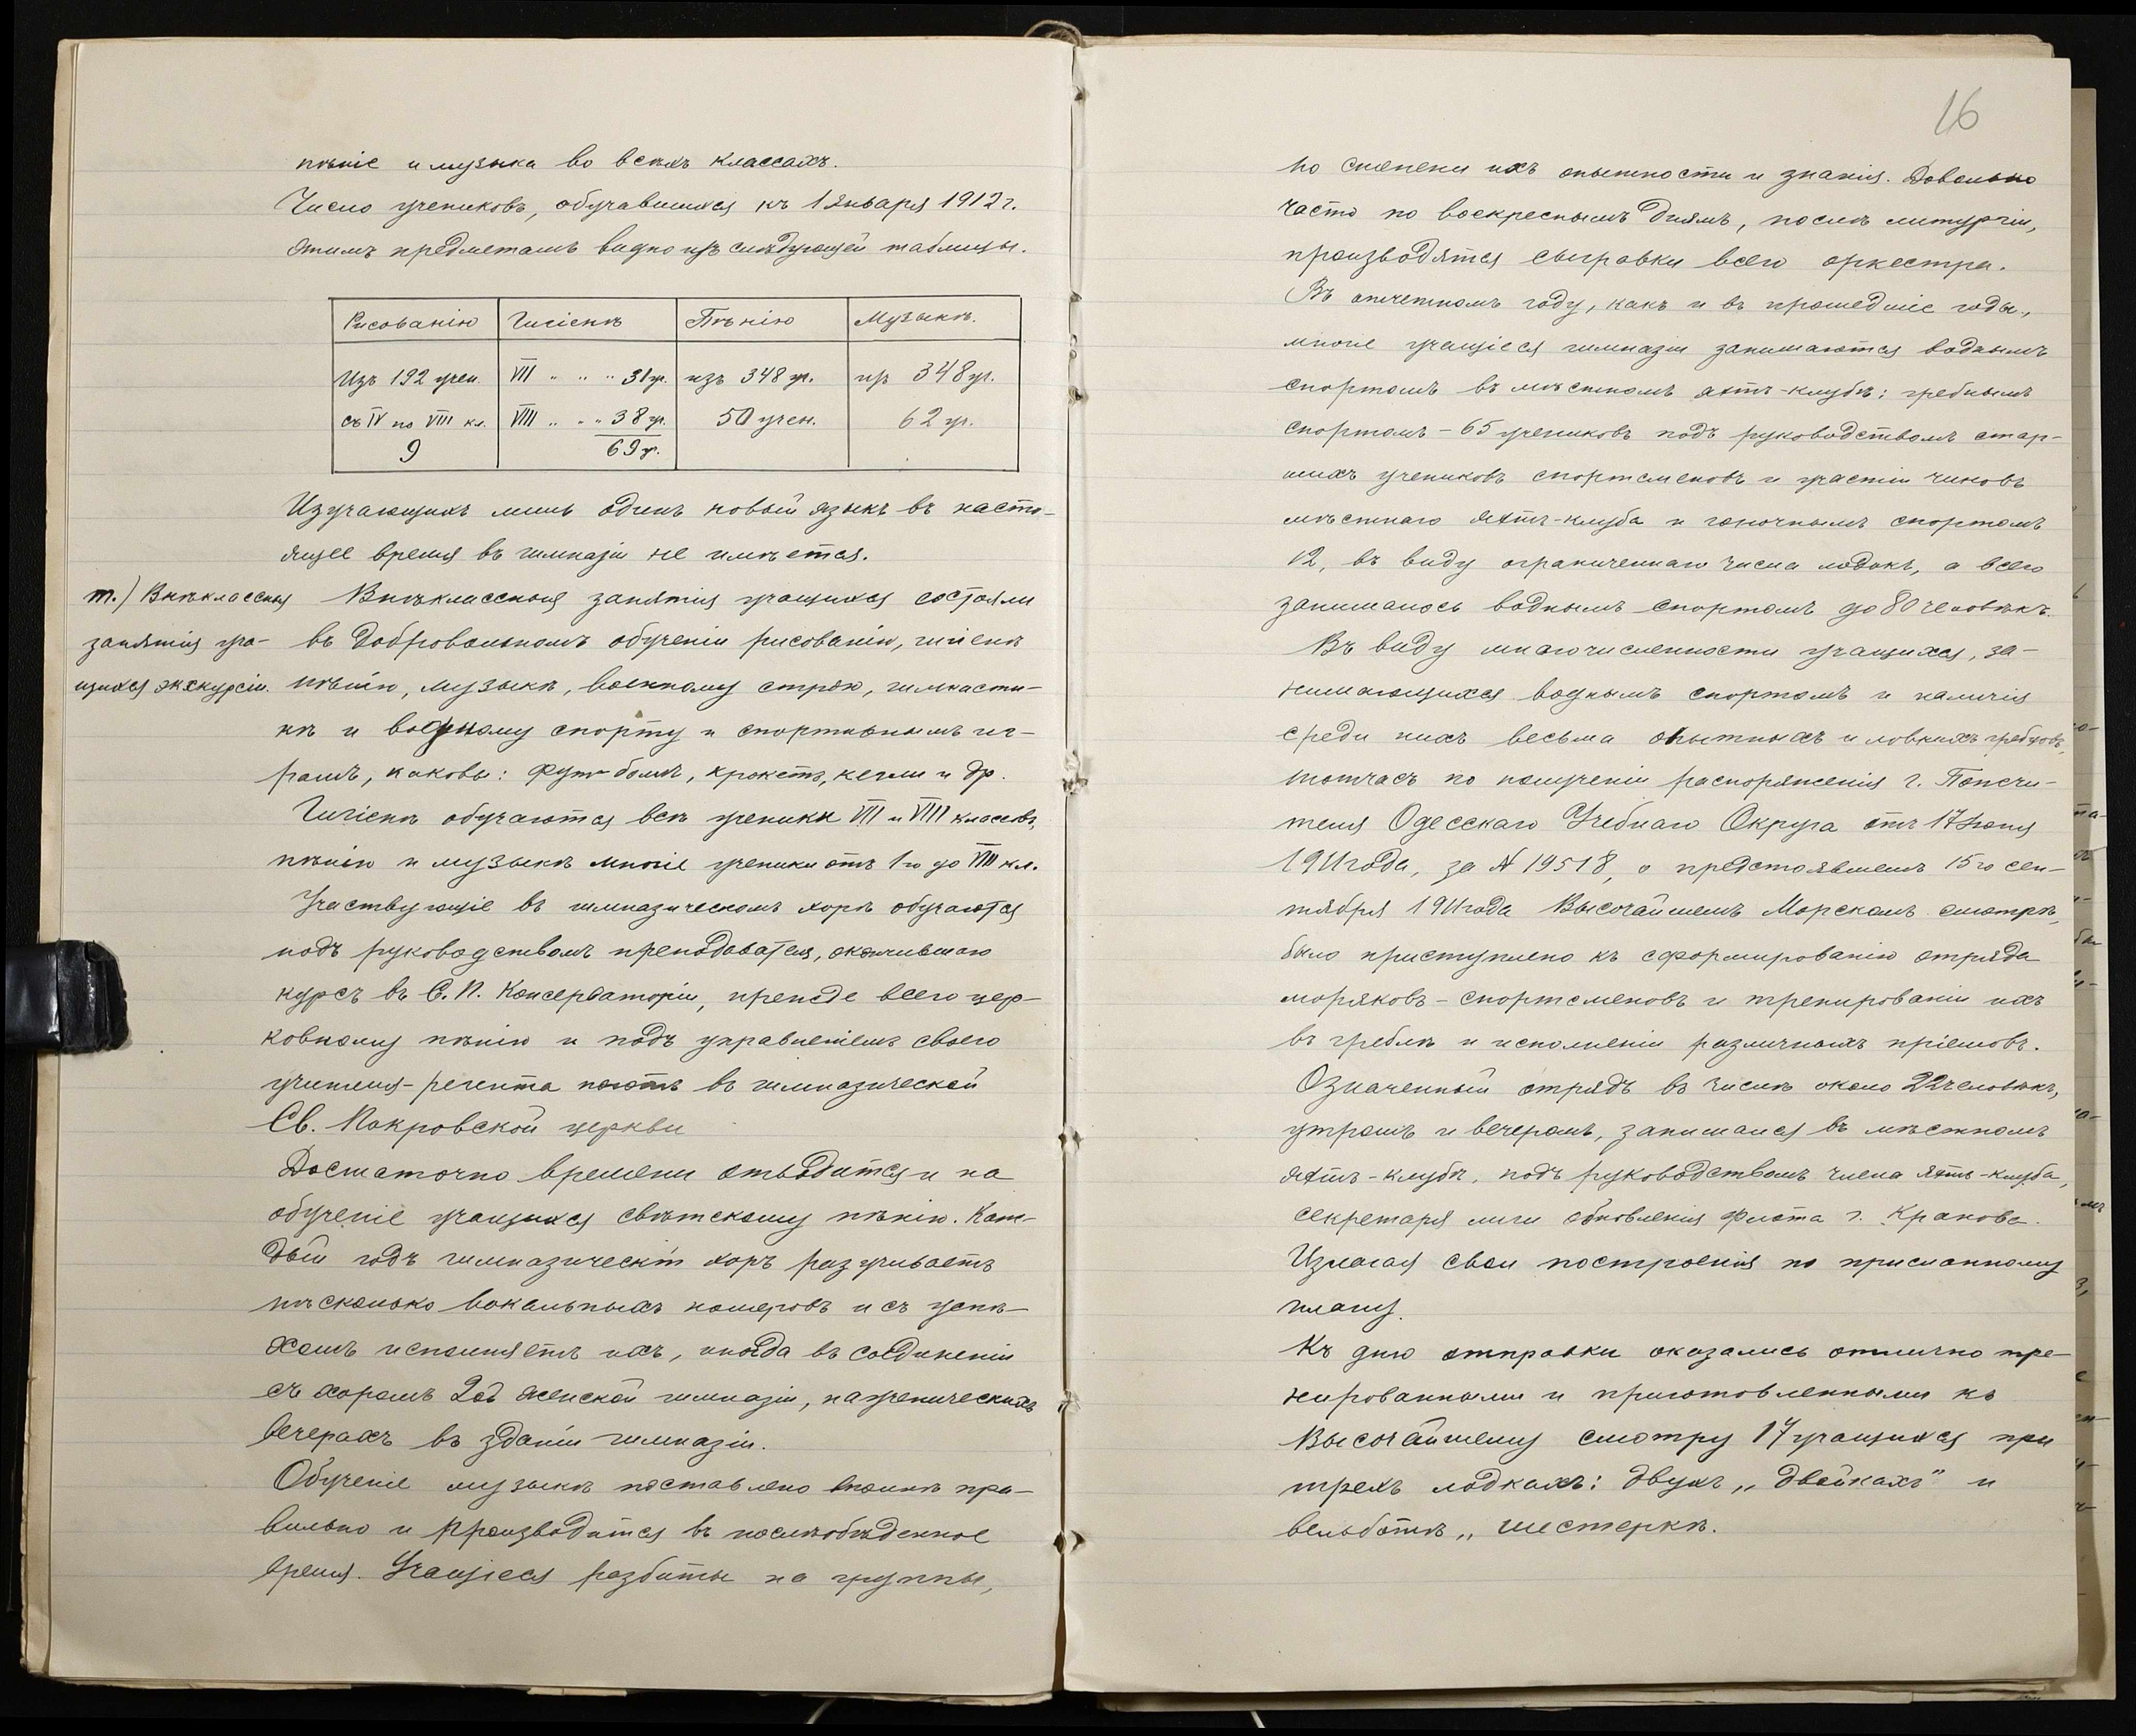 пѣніе и музыка во всѣхъ классахъ.
Число учениковъ, обучавшихся къ 1 Января 1912 г.
этимъ предметамъ видно изъ слѣдующей таблицы.
Рисованію Гигіенѣ Пѣнію Музыкѣ.
Изъ 192 учен. VII " " " 31 уч. изъ 348 уч. изъ 348 уч.
съ IV по VIII кл. VIII " " " 38 уч. 50 учен. 62 уч.
9 69 уч.
Изучающихъ лишь одинъ новый языкъ въ насто-
ящее время въ гимназіи не имѣется.
т.) Внѣклассныя
занятія уча-
щихся экскурсіи.
Внѣклассныя занятія учащихся состояли
въ добровольномъ обученіи рисованію, гигіенѣ
пѣнію, музыкѣ, военному строю, гимнасти-
кѣ и водному спорту и спортивнымъ иг-
рамъ, каковы: футъ-болъ, крокетъ, кегли и др.
Гигіенѣ обучаются всѣ ученики VII и VIII классовъ,
пѣнію и музыкѣ многіе ученики отъ 1го до VIII кл.
Участвующіе въ гимназическомъ хорѣ обучаются
подъ руководствомъ преподавателя, окончившаго
курсъ въ С. П. Консерваторіи, прежде всего цер-
ковному пѣнію и подъ управленіемъ своего
учителя-регента поютъ въ гимназической
Св. Покровской церкви
Достаточно времени отводится и на
обученіе учащихся свѣтскому пѣнію. Каж-
дый годъ гимназическій хоръ разучиваетъ
нѣсколько вокальныхъ номеровъ и съ успѣ-
хомъ исполняетъ ихъ, иногда въ соединеніи
съ хоромъ 2ой женской гимназіи, на ученическихъ
вечерахъ въ зданіи гимназіи.
Обученіе музыкѣ поставлено вполнѣ пра-
вильно и производится въ послѣобѣденное
время. Учащіеся разбиты на группы,
16
по степени ихъ опытности и знанія. Довольно
часто по воскреснымъ днямъ, послѣ литургіи,
производятся сыгровки всего оркестра.
Въ отчетномъ году, какъ и въ прошедшіе годы,
многіе учащіеся гимназіи занимаются воднымъ
спортомъ въ мѣстномъ яхтъ-клубѣ: гребнымъ
спортомъ - 65 учениковъ подъ руководствомъ стар-
шихъ учениковъ спортсменовъ и участіи чиновъ
мѣстнаго яхтъ-клуба и гоночнымъ спортомъ
12, въ виду ограниченнаго числа лодокъ, а всего
занималось воднымъ спортомъ до 80 человѣкъ.
Въ виду многочисленности учащихся, за-
нимающихся воднымъ спортомъ и наличія
среди нихъ весьма опытныхъ и ловкихъ гребцовъ,
тотчасъ по полученіи распоряженія г. Попечи-
теля Одесскаго Учебнаго Округа отъ 17 Іюня
1911 года, за № 19518, о предстоявшемъ 15го сен-
тября 1911 года Высочайшемъ Морскомъ смотрѣ,
было приступлено къ сформированію отряда
моряковъ-спортсменовъ и тренированіи ихъ
въ греблѣ и исполненіи различныхъ пріемовъ.
Означенный отрядъ въ числѣ около 22 человѣкъ,
утромъ и вечеромъ, занимался въ мѣстномъ
яхтъ-клубѣ, подъ руководствомъ члена яхтъ-клуба,
секретаря лиги обновленія флота г. Кранова.
Излагая свои построенія по присланному
плану.
Къ дню отправки оказались отлично тре-
нированными и приготовленными ко
Высочайшему смотру 17 учащихся при
трехъ лодкахъ: двухъ „двойкахъ" и
вельботѣ „шестеркѣ.